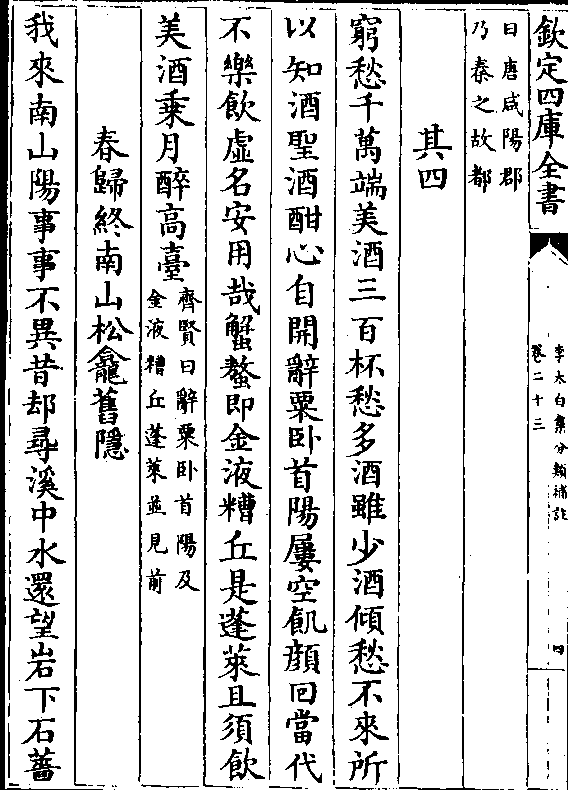 欽定四庫全書
李太白集分類補註
卷二十三
四
曰唐咸陽郡
乃秦之故都
其四
窮愁千萬端美酒三百杯愁多酒雖少酒傾愁不來所
以知酒聖酒酣心自開辭粟卧首陽屢空飢顔回當代
不樂飲虛名安用哉蟹螯即金液糟丘是蓬萊且須飲
美酒乗月醉高臺
齊賢曰辭粟卧首陽及
金液糟丘蓬萊並見前
春歸終南山松龕舊隱
我來南山陽事事不異昔却尋溪中水還望岩下石薔